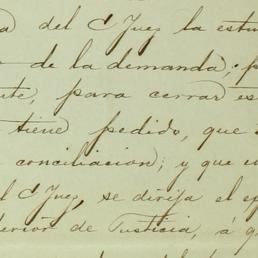 del C Juez la
de la demanda; p
para cerrar es
tiene pedido, que
conciliacion; y que en
C Juez, se dirija el
de Justicia, á